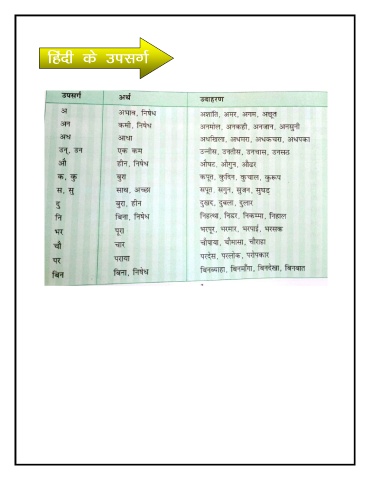 हिंदी के उपसर्ग
उपसर्ग अर्थ उदाहरण
अ अभाव, निषेध अशांति, अमर, अगम, अछूत
अन कमी, निषेध अनमोल, अनकही, अनजान, अनसुनी
अध आधा अधखिला, अधमरा, अधकचरा, अधपका
उन्, उन एक कम उन्नीस, उनतीस, उनचास, उनसठ
औ हीन, निषेध औघट, औगुन, औढर
क, कु बुरा कपूत, कुदिन, कुचाल, कुरूप
स, सु साथ, अच्छा सपूत, सगुन, सुजन, सुघड़
दु बुरा, हीन दुखद, दुबला, दुलार
नि बिना, निषेध निहत्था, निडर, निकम्मा, निहाल
भर पूरा भरपूर, भरमार, भरपाई, भरसक
चौ चार चौपाया, चौमासा, चौराहा
पर पराया परदेस, परलोक, परोपकार
बिन बिना, निषेध बिनब्याहा, बिनमाँगा, बिनदेखा, बिनबात